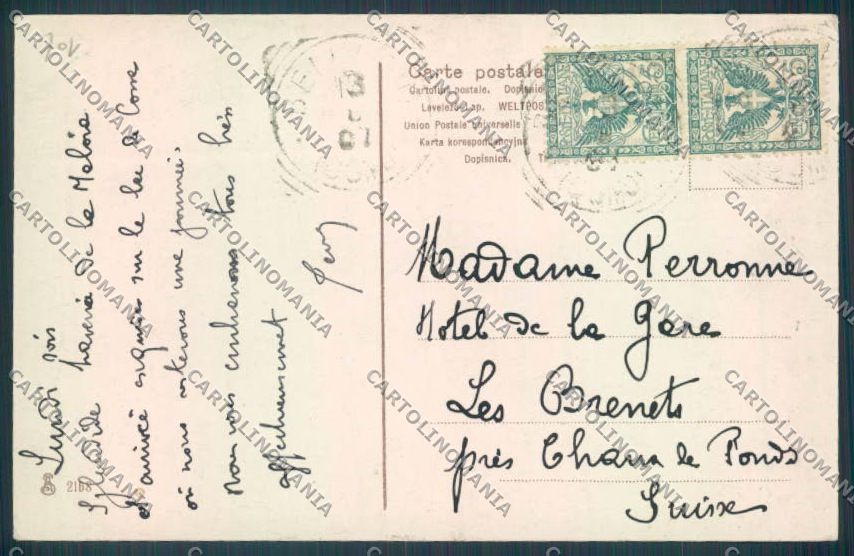 Lundi soir
Splendide traversée de la Maloïa
et arrivée exquise sur le lac de Come
où nous resterons une journée.
Nous vous embrassons tous très
affectueusement
2168
Carte postale
Cartolina postale. Dopisnice
Levelező-Lap. WELTPOS
Union Postale universelle
Karta korespondencyjna
Dopisnica.
Madame Perronne
Hotel de la Gare
Les Brenets
près Chaux de Fonds
Suisse
CARTOLINOMANIA